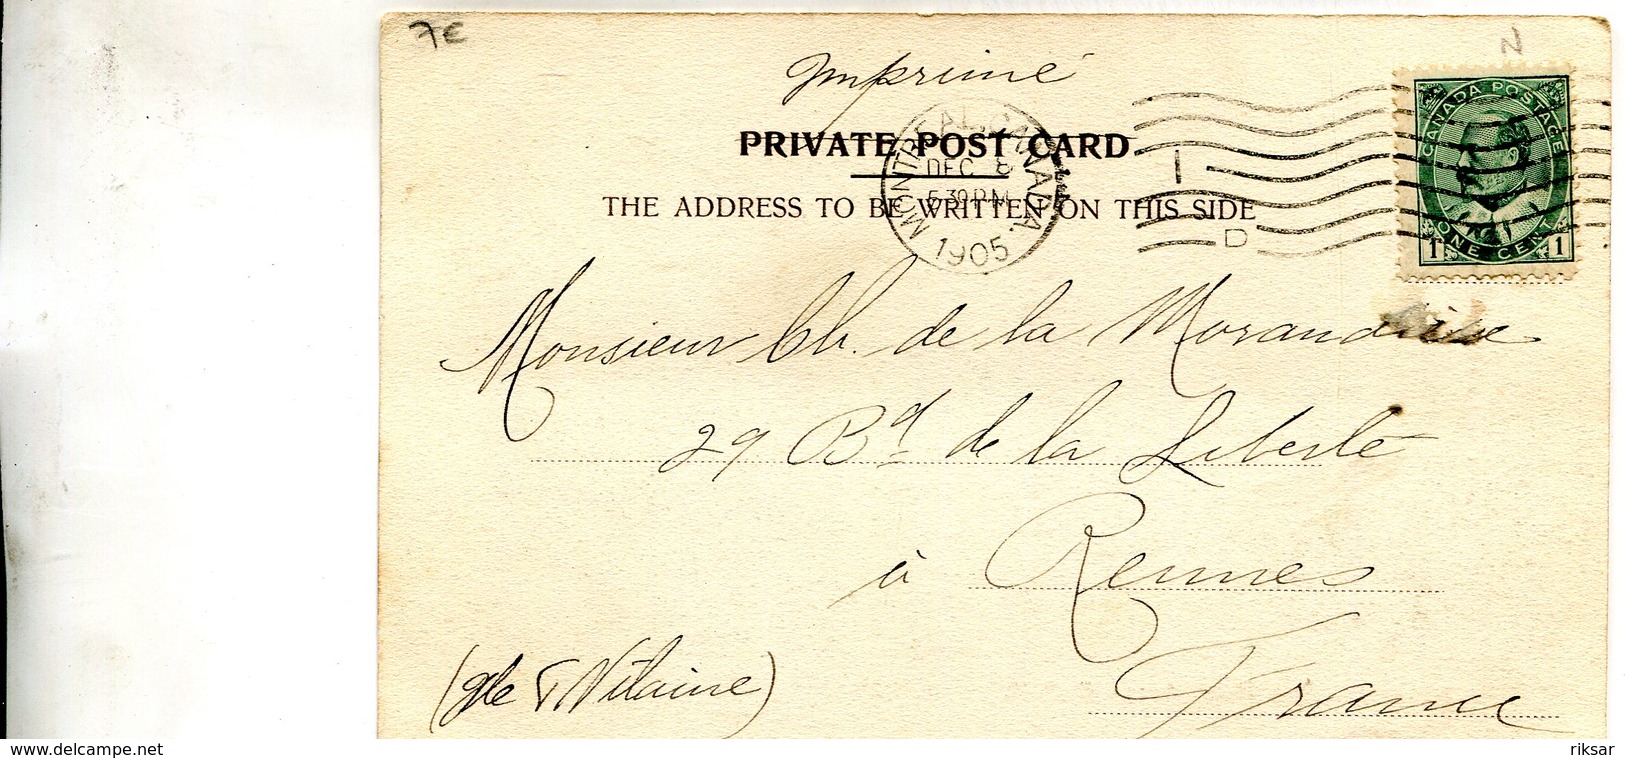 7€
N
Imprimé
CANADA POSTAGE
1 ONE CENT 1
PRIVATE POST CARD
MONTREAL, CANADA.
DEC 8
5 30 P.M.
1905
1
D
THE ADDRESS TO BE WRITTEN ON THIS SIDE
Monsieur Ch. de la Morandière
29 Bd de la Liberté
à Rennes
(Ille & Vilaine)
France
www.delcampe.net
riksar